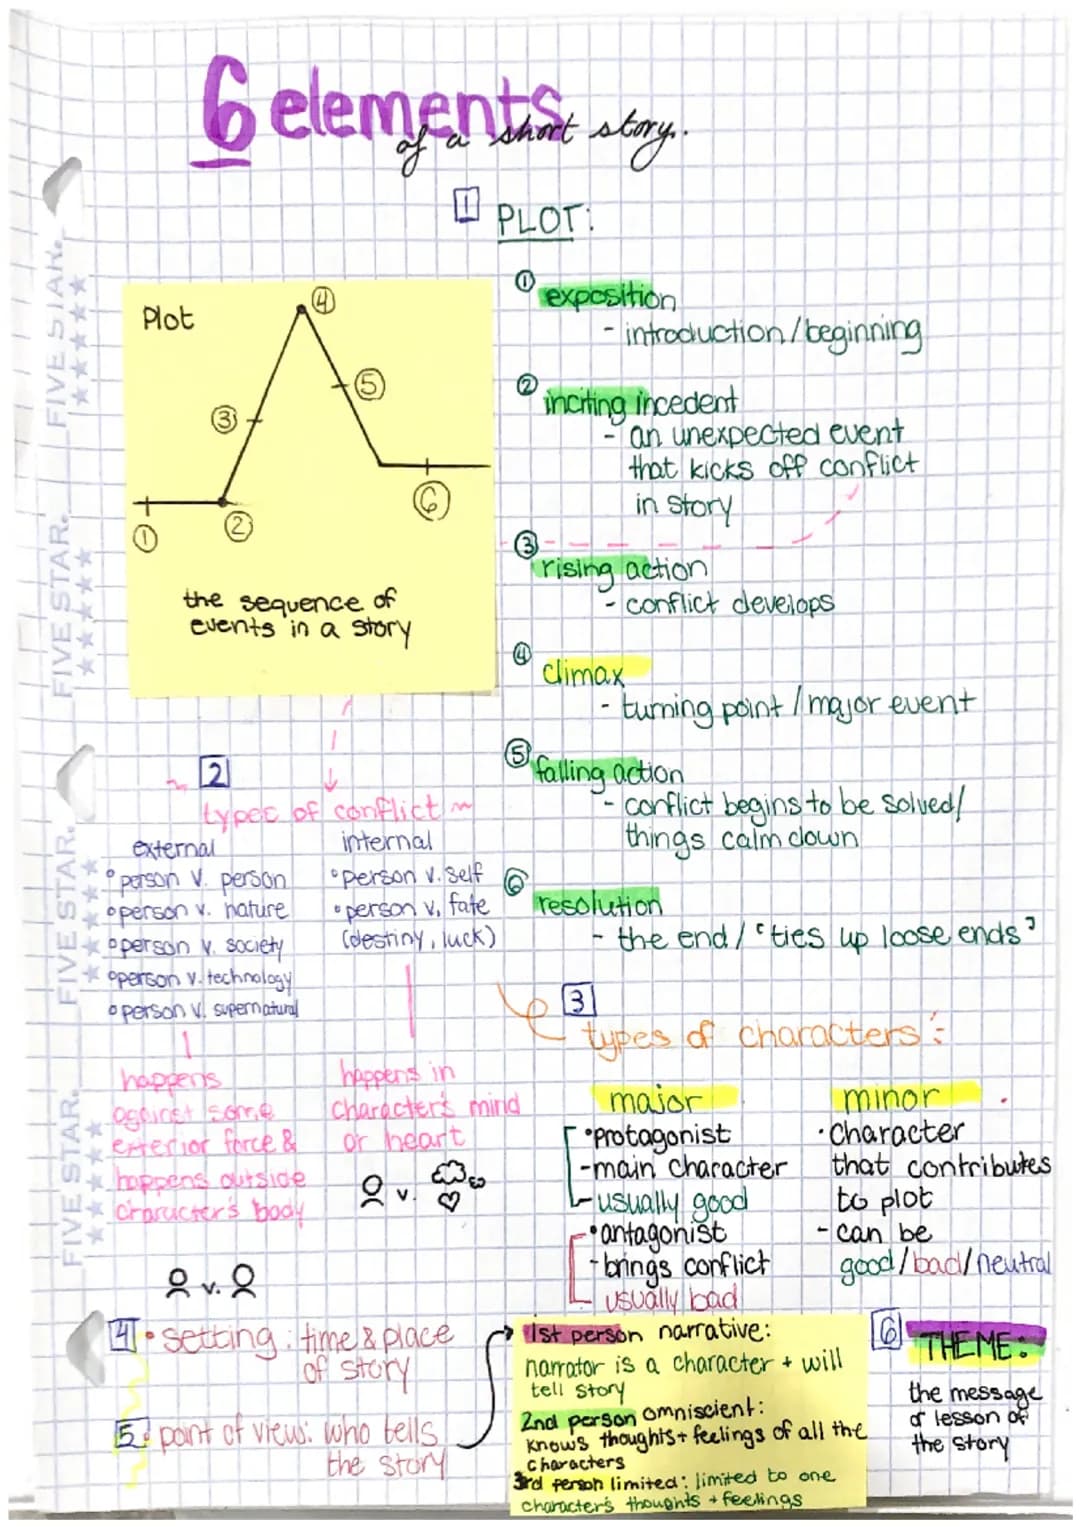 6 elements
of a short story.
1 PLOT:
Plot
1
2
3
4
5
6
the sequence of
events in a story
① exposition
- introduction/beginning
② inciting incedent
- an unexpected event
that kicks off conflict
in story
③ rising action
- conflict develops
④ climax
- turning point / major event
⑤ falling action
- conflict begins to be solved/
things calm down
⑥ resolution
- the end / "ties up loose ends"
2
types of conflict
external
° person v. person
° person v. nature
° person v. society
° person v. technology
° person v. supernatural
happens
against some
exterior force &
happens outside
character's body
v.
internal
° person v. self
° person v. fate
(destiny, luck)
happens in
character's mind
or heart
v.
3
types of characters:
major
• protagonist
- main character
- usually good
• antagonist
- brings conflict
usually bad
minor
• character
that contributes
to plot
- can be
good/bad/neutral
4 • setting: time & place
of story
5. point of view: who tells
the story
1st person narrative:
narrator is a character + will
tell story
2nd person omniscient:
knows thoughts + feelings of all the
characters
3rd person limited: limited to one
character's thoughts + feelings
6 THEME:
the message
or lesson of
the story
FIVE STAR.
FIVE STAR.
FIVE STAR.
FIVE STAR.